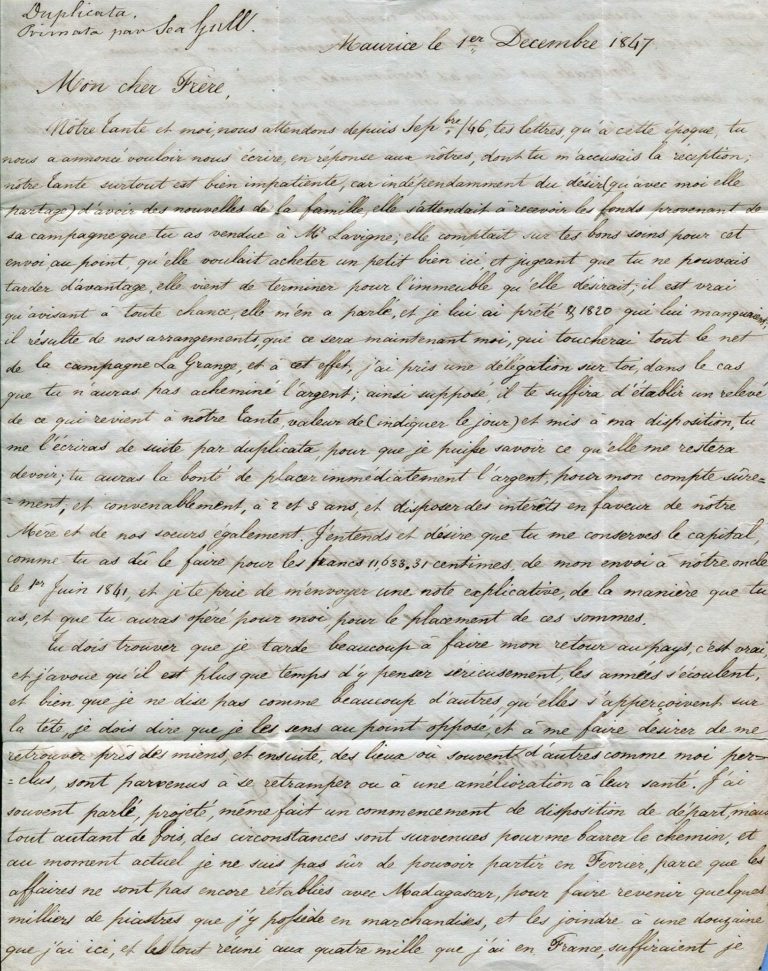 Duplicata.
Primata par Sea Gull.
Maurice le 1er Decembre 1847
Mon cher Frère,
Nôtre Tante et moi, nous attendons depuis Sepbre/46, tes lettres, qu'à cette époque, tu
nous a annoncé vouloir nous écrire, en réponse aux nôtres, dont tu m'accusais la réception;
nôtre Tante surtout est bien impatiente, car indépendamment du désir (qu'avec moi elle
partage) d'avoir des nouvelles de la famille, elle s'attendait à recevoir les fonds provenant de
sa campagne que tu as vendue à Mr Lavigne; elle comptait sur tes bons soins pour cet
envoi au point, qu'elle voulait acheter un petit bien ici et jugeant que tu ne pouvais
tarder d'avantage, elle vient de terminer pour l'immeuble qu'elle désirait; il est vrai
qu'avisant à toute chance, elle m'en a parlé, et je lui ai prêté $ 1820 qui lui manquaient;
il résulte de nos arrangements, que ce sera maintenant moi, qui toucherai tout le net
de la campagne La Grange, et à cet effet, j'ai pris une délégation sur toi, dans le cas
que tu n'auras pas acheminé l'argent; ainsi supposé, il te suffira d'établir un relevé
de ce qui revient à nôtre Tante, valeur de (indiquer le jour) et mis à ma disposition, tu
me l'écriras de suite par duplicata, pour que je puisse savoir ce qu'elle me restera
devoir; tu auras la bonté de placer immédiatement l'argent, pour mon compte sûre=
=ment, et convenablement, à 2 et 3 ans, et disposer des intérêts en faveur de nôtre
Mère et de nos soeurs également. J'entends et désire que tu me conserves le capital,
comme tu as dû le faire pour les francs 11,633.31 centimes, de mon envoi à nôtre oncle
le 1er Juin 1841, et je te prie de m'envoyer une note explicative, de la manière que tu
as, et que tu auras opéré pour moi, pour le placement de ces sommes.
Tu dois trouver que je tarde beaucoup à faire mon retour au pays, c'est vrai,
et j'avoue qu'il est plus que temps d'y penser sérieusement, les années s'écoulent,
et bien que je ne dise pas comme beaucoup d'autres, qu'elles s'apperçoivent sur
la tête, je dois dire que je les sens au point opposé, et à me faire désirer de me
retrouver près des miens, et ensuite, des lieux où souvent d'autres comme moi per=
=clus, sont parvenus à se retramper ou à une amélioration à leur santé. J'ai
souvent parlé, projeté, même fait un commencement de disposition de départ, mais
tout autant de fois, des circonstances sont survenues pour me barrer le chemin, et
au moment actuel je ne suis pas sûr de pouvoir partir en Fevrier, parce que les
affaires ne sont pas encore rétablies avec Madagascar, pour faire revenir quelques
milliers de piastres que j'y possède en marchandises, et les joindre à une douzaine
que j'ai ici, et le tout reuni aux quatre mille que j'ai en France, suffiraient je